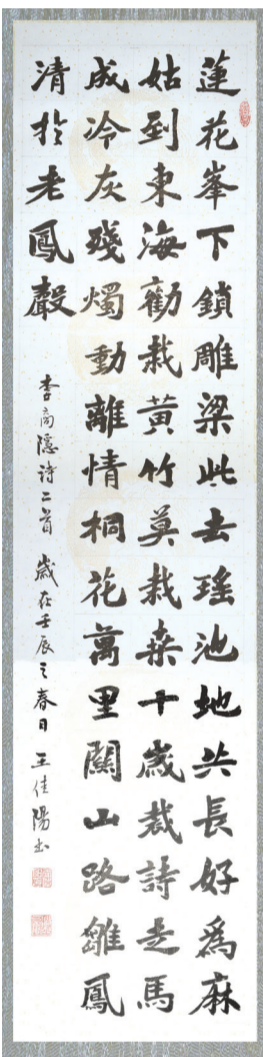 蓮花峯下鎖雕梁此去瑤池地共長好爲麻
姑到東海勸栽黃竹莫栽桑十歲裁詩走馬
成冷灰殘燭動離情桐花萬里關山路雛鳳
清於老鳳聲
李商隱詩二首 歲在壬辰之春日 王佳陽书